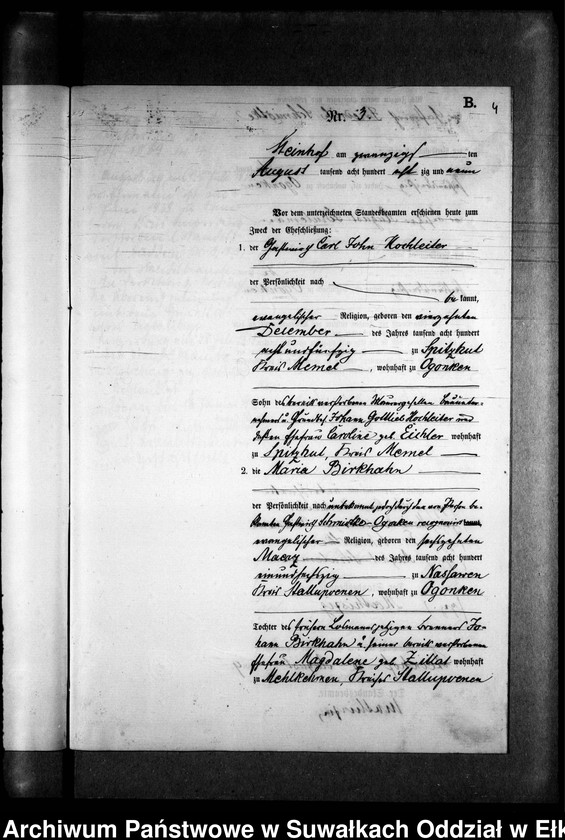 B. 4
Nr. 3.
Steinhof am zwanzigsten
August tausend acht hundert acht zig und neun
Vor dem unterzeichneten Standesbeamten erschienen heute zum
Zweck der Eheschließung:
1. der Gastwirth Carl John Hochleiter
der Persönlichkeit nach
be kannt,
evangelischer Religion, geboren den vierzehnten
Dezember des Jahres tausend acht hundert
acht und fünfzig zu Spitzhut
Kreis Memel, wohnhaft zu Ogonken
Sohn des bereits verstorbenen Maurergesellen
Johann Gottlieb Hochleiter und
dessen Ehefrau Caroline geb. Eichler wohnhaft
zu Spitzhut, Kreis Memel
2. die Maria Birkhahn
der Persönlichkeit nach unbekannt, jedoch durch den von Person be-
kannten Gastwirth Schmidtke-Ogonken recognoscirt kannt,
evangelischer Religion, geboren den sechszehnten
Maerz des Jahres tausend acht hundert
ein und sechszig zu Nassawen
Kreis Stallupoenen, wohnhaft zu Ogonken
Tochter des frühern Losmanns jetzigen Brenners Jo-
hann Birkhahn u. seiner bereits verstorbenen
Ehefrau Magdalene geb. Zillat wohnhaft
zu Mehlkehmen, Kreises Stallupoenen
Archiwum Państwowe w Suwałkach Oddział w Ełk